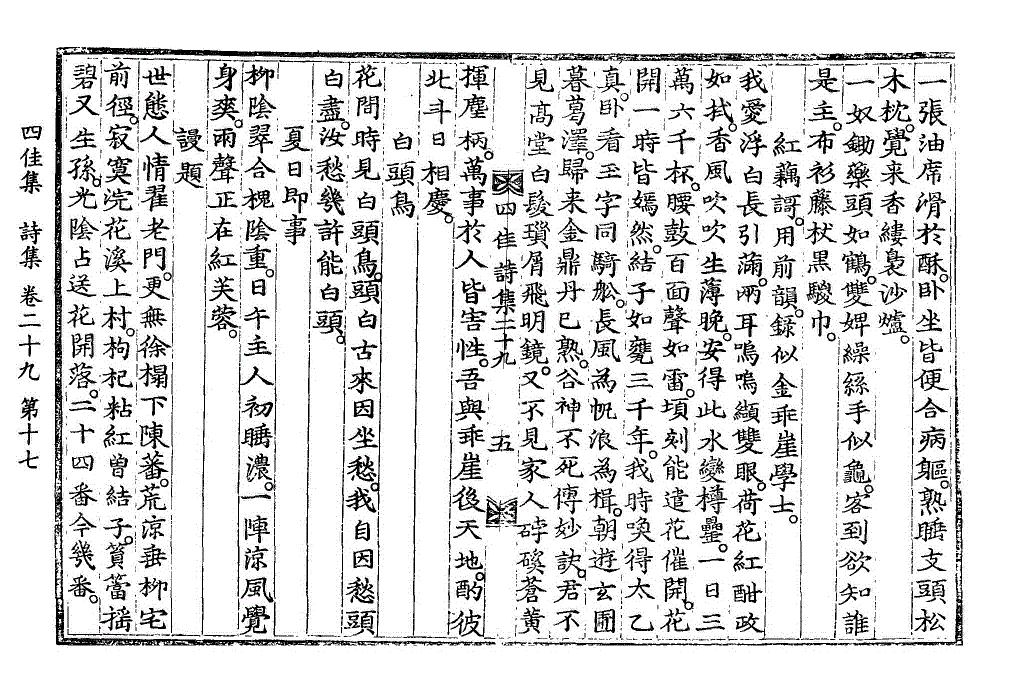 一張油席滑於酥。卧坐皆便合病軀。熟睡支頭松
木枕。覺来香縷裊沙爐。
一奴鋤藥頭如鶴。雙婢繰絲手似龜。客到欲知誰
是主。布衫藤杖黒騣巾。
紅藕謌。用前韻。録似金乖崖學士。
我愛浮白長引滿。兩耳嗚嗚纈雙眼。荷花紅酣政
如拭。香風吹吹生薄晚。安得此水變樽罍。一日三
萬六千杯。腰鼓百面聲如雷。頃刻能遣花催開。花
開一時皆嫣然。結子如甕三千年。我時喚得太乙
真。卧看玉字同騎舩。長風為帆浪為楫。朝遊玄圃
暮葛澤。歸来金鼎丹已熟。谷神不死傳妙訣。君不
見高堂白髮瑣屑飛明鏡。又不見家人碎磎蒼黄
四佳詩集二十九 五
揮麈柄。萬事於人皆害性。吾與乖崖後天地。酌彼
北斗日相慶。
白頭鳥
花間時見白頭鳥。頭白古來因坐愁。我自因愁頭
白盡。汝愁幾許能白頭。
夏日即事
柳陰翠合槐陰重。日午主人初睡濃。一陣涼風覺
身爽。雨聲正在紅芙蓉。
謾題
世態人情翟老門。更無徐榻下陳蕃。荒涼垂柳宅
前徑。寂寞浣花溪上村。枸杞粘紅曾結子。篔簹搖
碧又生孫。光陰占送花開落。二十四番今幾番。
四佳集 詩集 卷二十九 第十七